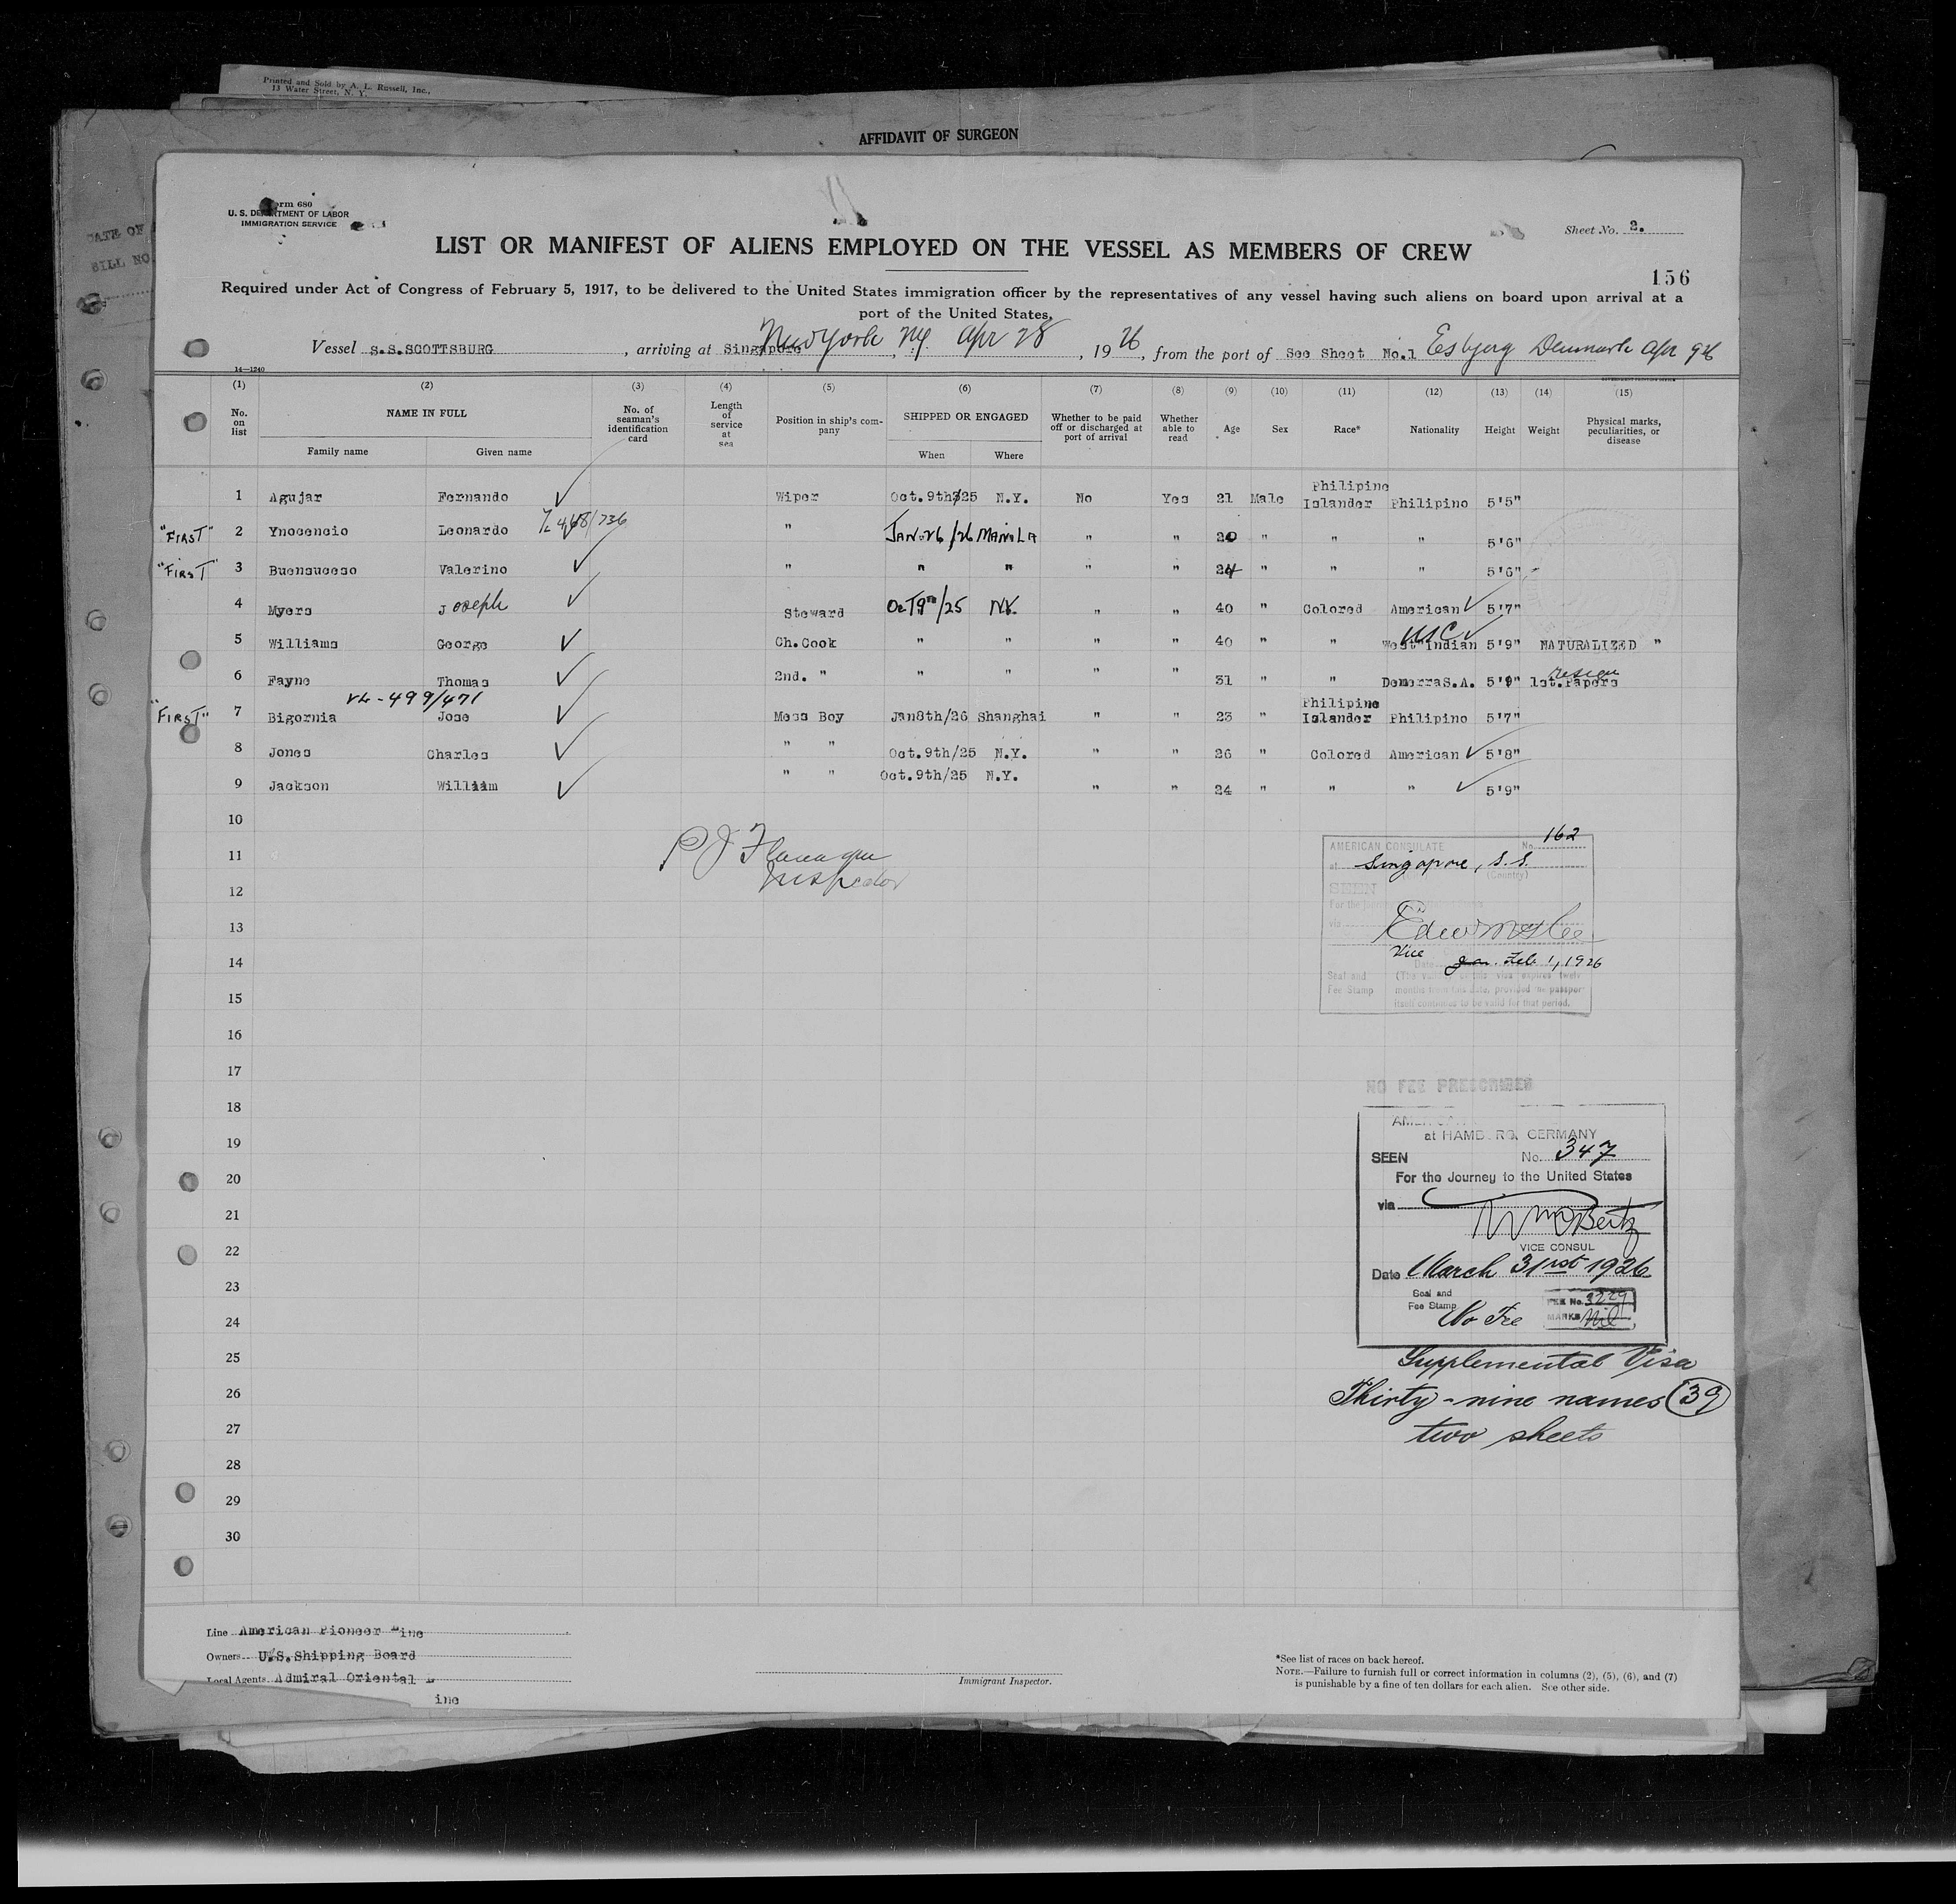 Printed and Sold by A. L. Russell, Inc.,
13 Water Street, N. Y.
AFFIDAVIT OF SURGEON
DATE OF
BILL NO.
Form 680
U. S. DEPARTMENT OF LABOR
IMMIGRATION SERVICE
Sheet No. 2.
LIST OR MANIFEST OF ALIENS EMPLOYED ON THE VESSEL AS MEMBERS OF CREW
156
Required under Act of Congress of February 5, 1917, to be delivered to the United States immigration officer by the representatives of any vessel having such aliens on board upon arrival at a
port of the United States.
Vessel S.S.SCOTTSBURG, arriving at Singapore New York NY. Apr 28, 1926, from the port of See Sheet No.1 Esbjerg Denmark Apr 9 26
14—1240
(1) (2) (3) (4) (5) (6) (7) (8) (9) (10) (11) (12) (13) (14) (15)
No. on list NAME IN FULL No. of seaman's identification card Length of service at sea Position in ship's company SHIPPED OR ENGAGED Whether to be paid off or discharged at port of arrival Whether able to read Age Sex Race* Nationality Height Weight Physical marks, peculiarities, or disease
Family name Given name When Where
1 Agujar Fernando Wiper Oct.9th325 N.Y. No Yes 21 Male Philipino Islander Philipino 5'5"
"FIRST" 2 Ynocencio Leonardo " JAN 26/26 MANILA " " 20 " " " 5'6"
"FIRST" 3 Buensuceso Valerino " " " " " 24 " " " 5'6"
4 Myers Joseph Steward OCT 9th/25 NY. " " 40 " Colored American 5'7"
5 Williams George Ch.Cook " " " " 40 " " West Indian USC 5'9" NATURALIZED "
6 Fayne Thomas 2nd. " " " " " 31 " " DemerraS.A. 5'9" 1st.Papers
VL-499/471
"FIRST" 7 Bigornia Jose Mess Boy Jan8th/26 Shanghai " " 23 " Philipino Islander Philipino 5'7"
8 Jones Charles " " Oct.9th/25 N.Y. " " 26 " Colored American 5'8"
9 Jackson William " " Oct.9th/25 N.Y. " " 24 " " " 5'9"
10
11
12
13
14
15
16
17
18
19
20
21
22
23
24
25
26
27
28
29
30
P J Flanagan
Inspector
AMERICAN CONSULATE No. 162
at Singapore, S.S.
(Country)
SEEN
For the
via
Vice
Date Jan. Feb 1, 1926
Seal and Fee Stamp
(The validity of this visa expires twelve months from this date, provided the passport itself continues to be valid for that period.
NO FEE PRESCRIBED
at HAMBURG, GERMANY
SEEN No. 347
For the Journey to the United States
via
VICE CONSUL
Date March 31rst 1926
Seal and
Fee Stamp No Fee
FEE No. 3229
MARKS Nil
Supplemental Visa
Thirty-nine names (39)
two sheets
Line American Pioneer Line
Owners U.S.Shipping Board
Local Agents Admiral Oriental Line
Immigrant Inspector.
*See list of races on back hereof.
NOTE.—Failure to furnish full or correct information in columns (2), (5), (6), and (7)
is punishable by a fine of ten dollars for each alien. See other side.